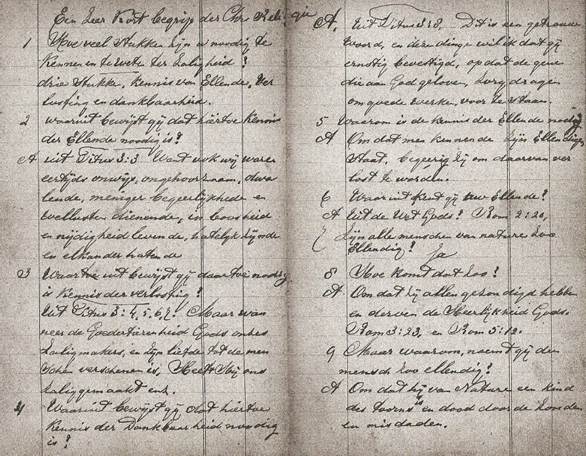 Een Zeer Kort begrijp der Chr Religie
1 Hoe veel stukken zijn u noodig te
Kennen en te wete ter zaligheid?
drie stukke, kennis van Ellende, Ver
lossing en dankbaarheid.
2 waaruit bewijst gij dat hiertoe Kennis
der Ellende noodig is?
A uit Titus 3:3 Want ook wij ware
eertijds onwijs, ongehoorzaam, dwa
lende, meniger begeerlijkhede en
wellusten dienende, in boosheid
en nijdigheid levende, hatelijk zijnde
en elkander hatende
3 Waar uit bewijst gij daar toe noodig
is Kennis der verlossing?
Uit Titus 3:4,5,6,7. Maar wan
neer de Goedertierenheid Gods onses
Zaligmakers, en zijn liefde tot de men
schen verschenen is, Heeft Hij ons
zalig gemaakt enz.
4 Waaruit bewijst gij dat hiertoe
Kennis der Dankbaarheid noodig
is?
A, Uit Titus 3:8, Dit is een getrouw
Woord, en deze dinge wil ik dat gij
ernstig bevestigd, op dat de gene
die aan God geloven, zorg dragen
om goede werke, voor te staan.
5 Waarom is de kennis der Ellende noodig
A Om dat men kennende zijn Ellendige
Staat, begeerig zij om daarvan ver
lost te worden.
6 Waaruit kent gij uw Ellende?
A Uit de Wet Gods? Rom 3:20,
7 Zijn alle menschen van nature zoo
Ellendig? Ja
8 Hoe komt dat zoo?
A Om dat zij allen gezondigd hebben
en derven de Heerlijkheid Gods.
Rom 3:23, en Rom 5:12.
9 Maar waarom, noemt gij den
mensch zoo ellendig?
A Om dat hij van Nature een kind
des toorns en dood door de zonden
en misdaden.